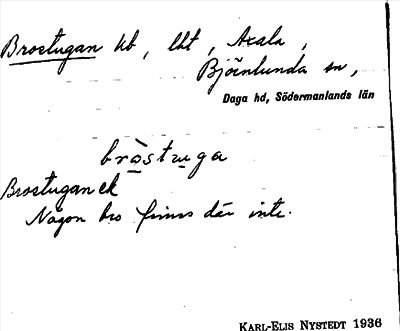 Brostugan hb, lht, Axala,
Björnlunda sn,
Daga hd, Södermanlands län
bròstuga
Brostugan ek
Någon bro finns där inte.
KARL-ELIS NYSTEDT 1936